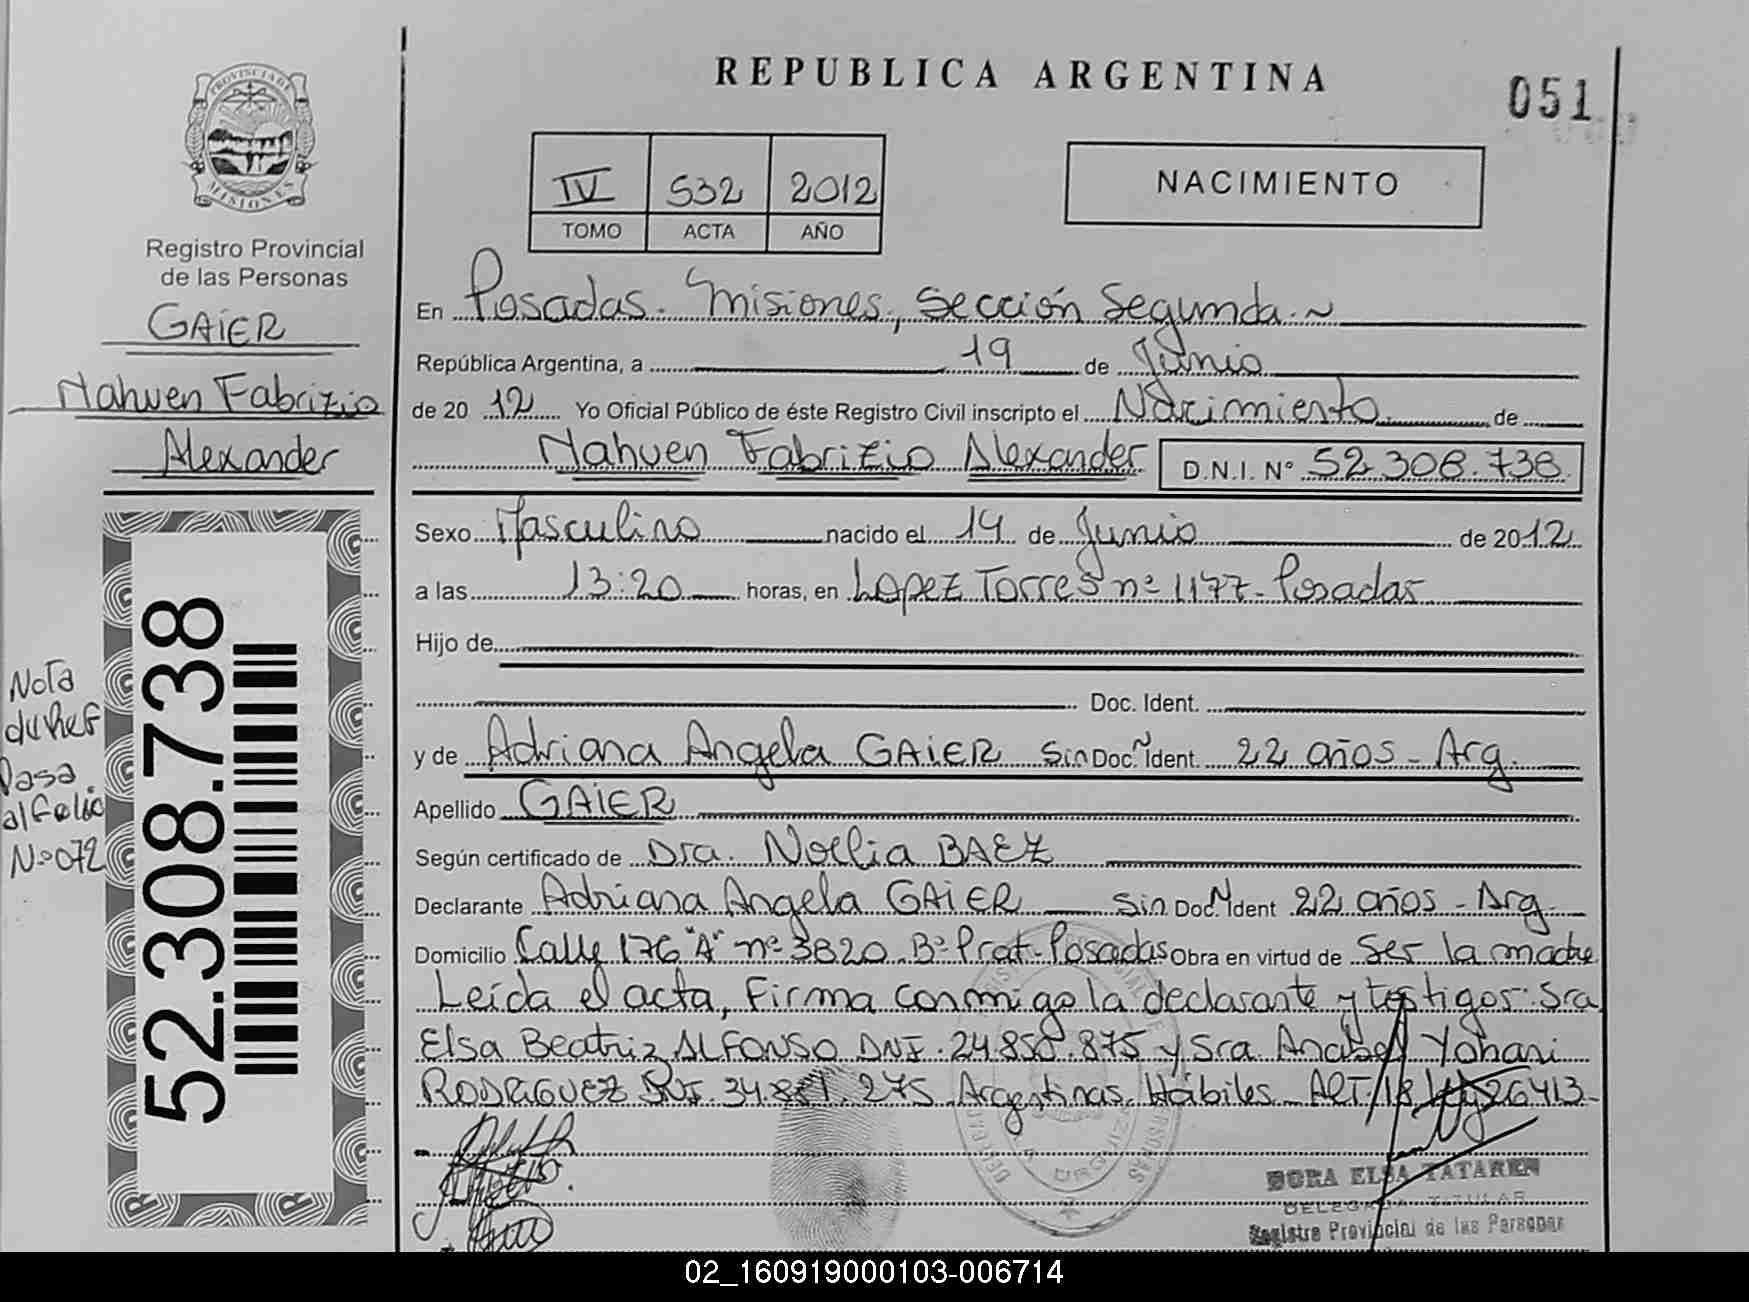 REPUBLICA ARGENTINA
051
PROVINCIA DE
MISIONES
Registro Provincial
de las Personas
GAIER
Nahuen Fabrizio
Alexander
52.308.738
Nota
Pasa
al folio
Nº 072
IV 532 2012
TOMO ACTA AÑO
NACIMIENTO
En Posadas. Misiones, Sección Segunda.~
República Argentina, a 19 de Junio
de 2012 Yo Oficial Público de éste Registro Civil inscripto el Nacimiento de
Nahuen Fabrizio Alexander D.N.I. Nº 52.308.738.
Sexo Masculino nacido el 14 de Junio de 2012
a las 13:20 horas, en Lopez Torres nº 1177- Posadas
Hijo de
Doc. Ident.
y de Adriana Angela GAIER Sin Doc. Ident. 22 años - Arg.
Apellido GAIER
Según certificado de Dra. Noelia BAEZ
Declarante Adriana Angela GAIER Sin Doc. Ident 22 años - Arg.
Domicilio Calle 176 "A" nº 3820. Bº Prat. Posadas Obra en virtud de Ser la madre
Leída el acta, Firma conmigo la declarante y testigos: Sra
Elsa Beatriz ALFONSO DNI. 24.850.875 y Sra Anabel Yohani
RODRIGUEZ DNI. 34.881.275 Argentinas. Hábiles - ART. 18 26413-
DORA ELSA TATAREN
DELEGADA TITULAR
Registro Provincial de las Personas
02_160919000103-006714